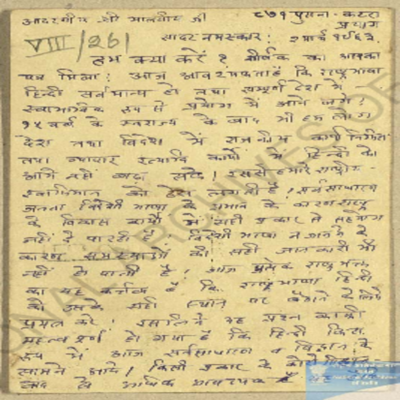 आदरणीय श्री मालवीय जी
८७१ पुराना-कटरा
प्रयाग
VIII/261
सादर नमस्कार:
हम क्या करें ? शीर्षक का आपका
पत्र मिला: आज आवश्यकता है कि राष्ट्रभाषा
हिन्दी सर्वमान्य हो तथा सम्पूर्ण देश में
स्वाभाविक रूप से प्रयोग में आने लगे!
१५ वर्ष के स्वराज्य के बाद भी हम लोग
देश तथा विदेश में राजनीति कार्य
तथा व्यापार इत्यादि कार्यों में हिन्दी को
आगे नहीं बढ़ा सके! इससे हमारे राष्ट्रीय
स्वाभिमान को ठेस लगती है!
जनता विदेशी भाषा के कारण राष्ट्र
के विकास कार्यों में सही प्रकार से सहयोग
नहीं दे पा रही है विदेशी भाषा न जानने के
कारण समस्याओं की सही जानकारी भी
नहीं हो पाती है! आज प्रत्येक राष्ट्र भक्त
का यह कर्तव्य है कि राष्ट्रभाषा हिन्दी
को उसके सही स्थान पर के लिये
प्रयत्न करे! इसलिये यह प्रश्न काफी
महत्वपूर्ण हो गया है कि हिन्दी किस
रूप में आज सर्वसाधारण व विद्वान के
सामने आये! किसी प्रकार के
अधिक आवश्यक है यह